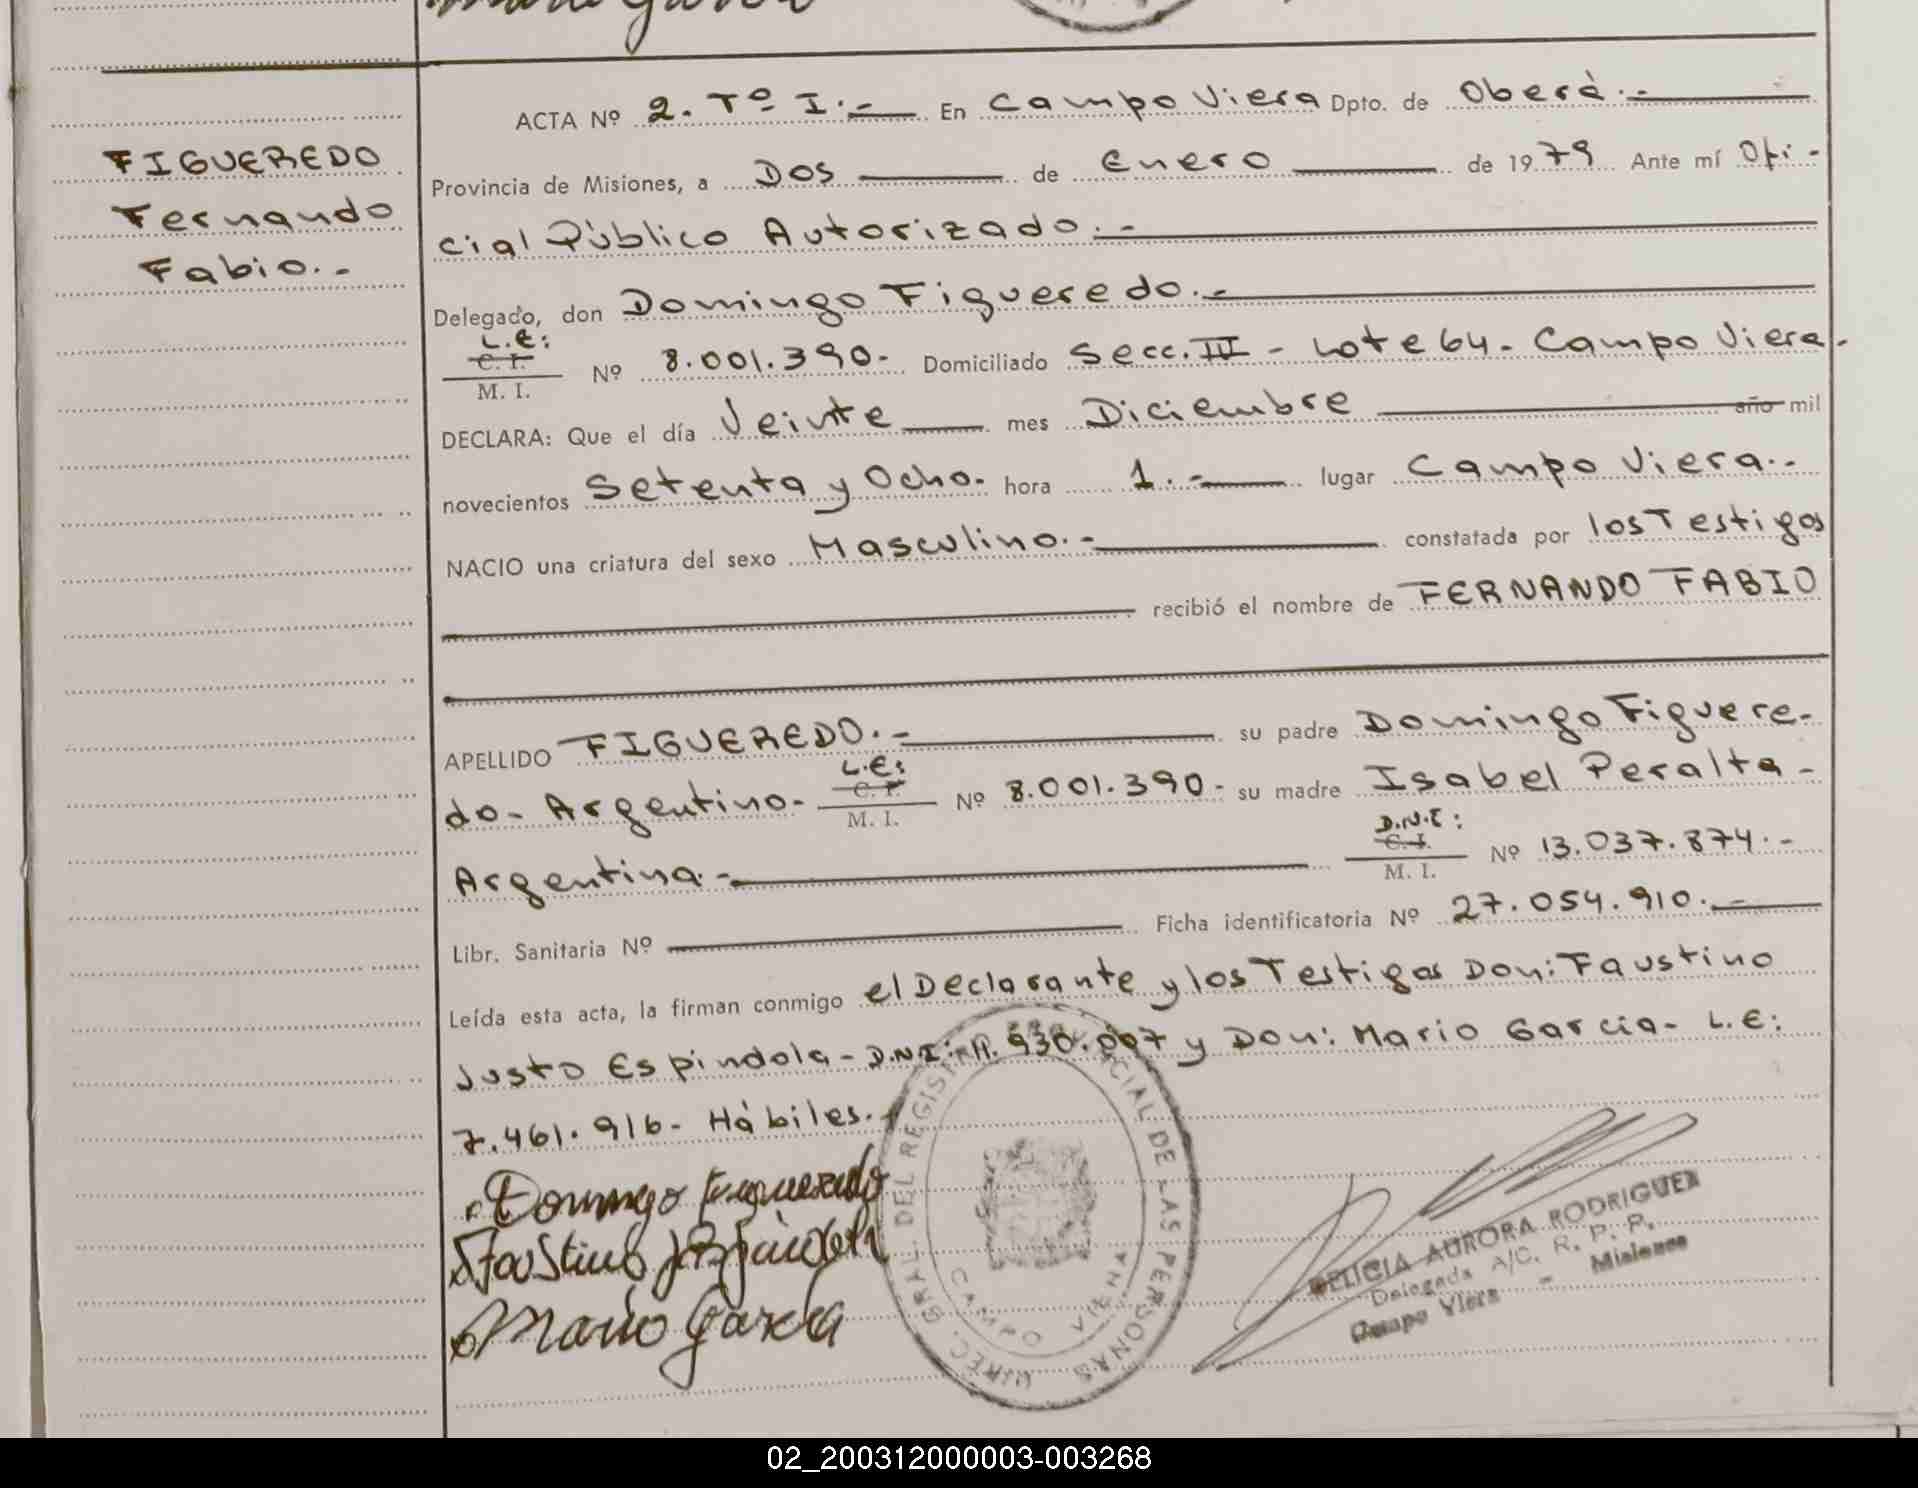 FIGUEREDO
Fernando
Fabio.-
ACTA Nº 2. Tº I.- En Campo Viera Dpto. de Oberá.-
Provincia de Misiones, a Dos de Enero de 1979 Ante mí Ofi-
cial Público Autorizado.-
Delegado, don Domingo Figueredo.-
L.E:
C. I.
M. I. Nº 8.001.390- Domiciliado Secc. IV - Lote 64 - Campo Viera.
DECLARA: Que el día Veinte mes Diciembre año mil
novecientos Setenta y Ocho. hora 1.- lugar Campo Viera.-
NACIO una criatura del sexo Masculino.- constatada por los Testigos
recibió el nombre de FERNANDO FABIO
APELLIDO FIGUEREDO.- su padre Domingo Figuere-
do- Argentino- L.E: C. I. M. I. Nº 8.001.390- su madre Isabel Peralta-
Argentina.- D.N.I: C. I. M. I. Nº 13.037.874.-
Libr. Sanitaria Nº Ficha identificatoria Nº 27.054.910.-
Leída esta acta, la firman conmigo el Declarante y los Testigos Don: Faustino
Justo Espindola- D.N.I: y Don: Mario Garcia- L.E:
7.461.916- Hábiles.-
Domingo Figueredo
Faustino J Espindola
Mario Garcia
DIREC. GRAL. DEL REGISTRO PROVINCIAL DE LAS PERSONAS
CAMPO VIERA
DELICIA AURORA RODRIGUEZ
Delegada A/C. R. P. P.
Campo Viera - Misiones
02_200312000003-003268